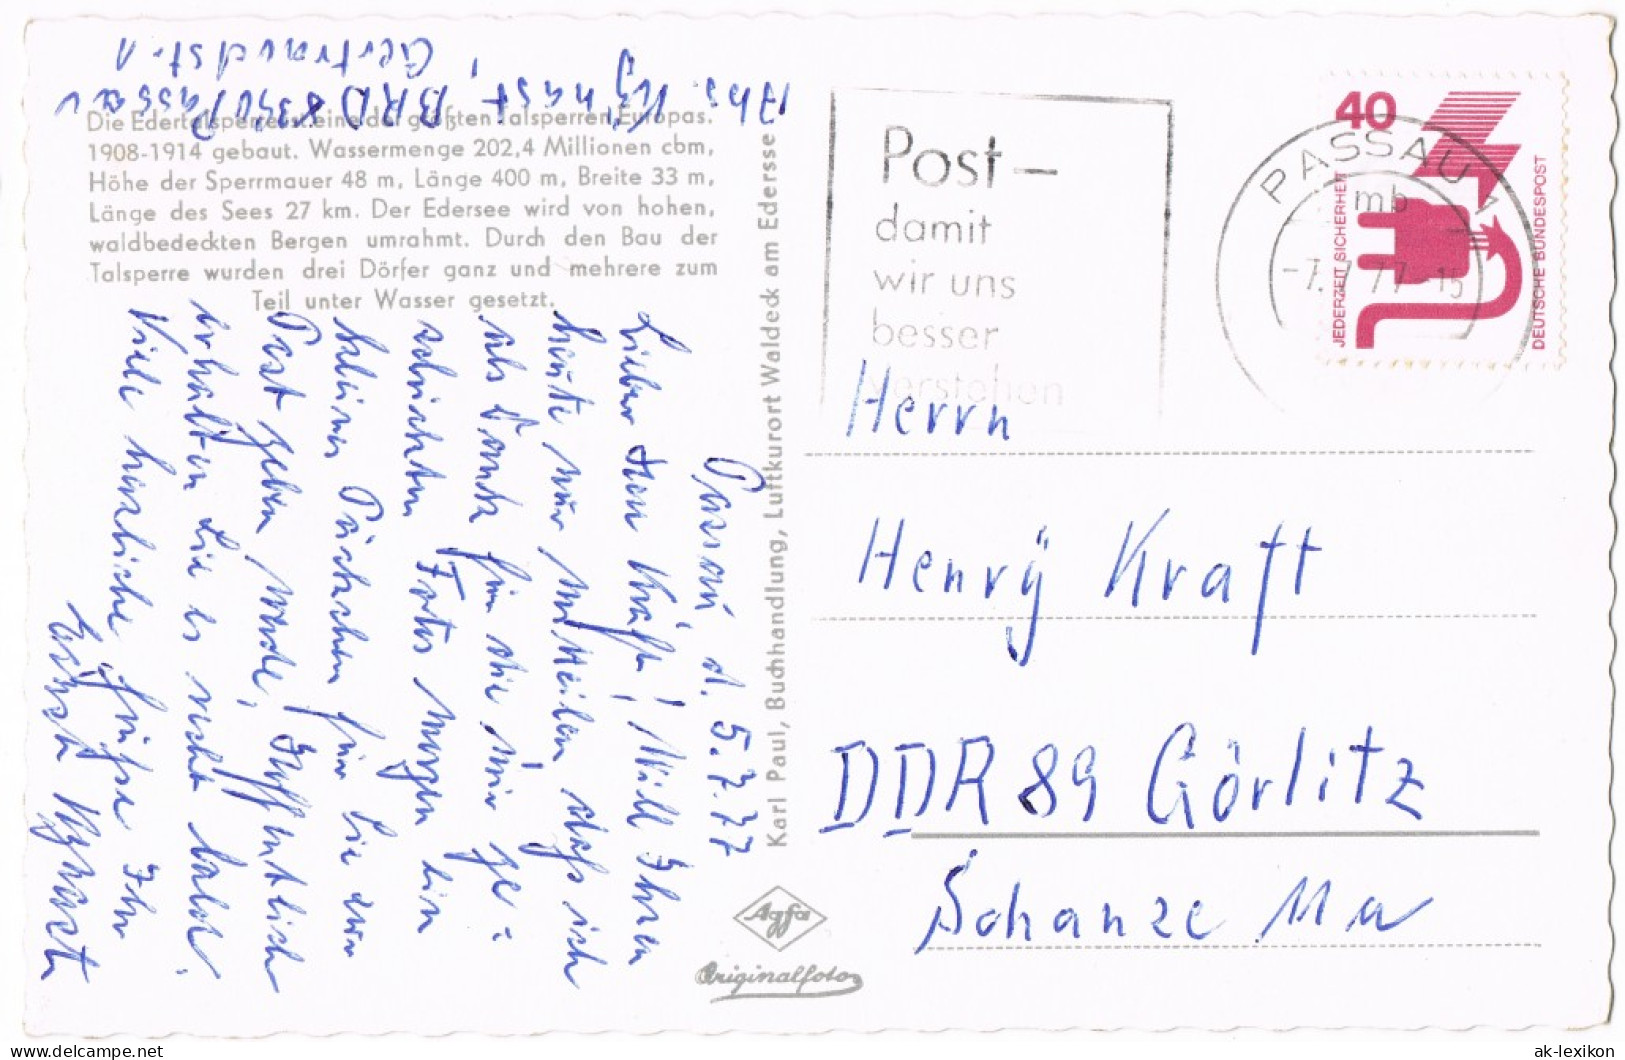 Abs. Kynast, BRD 8390 Passau
Gertraudstr. 1
Die Edertalsperre ist eine der größten Talsperren Europas.
1908-1914 gebaut. Wassermenge 202,4 Millionen cbm,
Höhe der Sperrmauer 48 m, Länge 400 m, Breite 33 m,
Länge des Sees 27 km. Der Edersee wird von hohen,
waldbedeckten Bergen umrahmt. Durch den Bau der
Talsperre wurden drei Dörfer ganz und mehrere zum
Teil unter Wasser gesetzt.
Passau, d. 5.7.77
Lieber Herr Kraft! Will Ihnen
heute nur mitteilen, daß ich
als Dank für die mir ge-
schickten Fotos morgen ein
kleines Päckchen für Sie zur
Post geben werde, Hoffentlich
erhalten Sie es recht bald.
Viele herzliche Grüße Ihr
Kynast
Karl Paul, Buchhandlung, Luftkurort Waldeck am Edersee
Agfa
Originalfoto
Post-
damit
wir uns
besser
verstehen
PASSAU 1
mb
-7.7.77-15
40
JEDERZEIT SICHERHEIT
DEUTSCHE BUNDESPOST
Herrn
Henrÿ Kraft
DDR 89 Görlitz
Schanze 11a
ak-lexikon.de
ak-lexikon